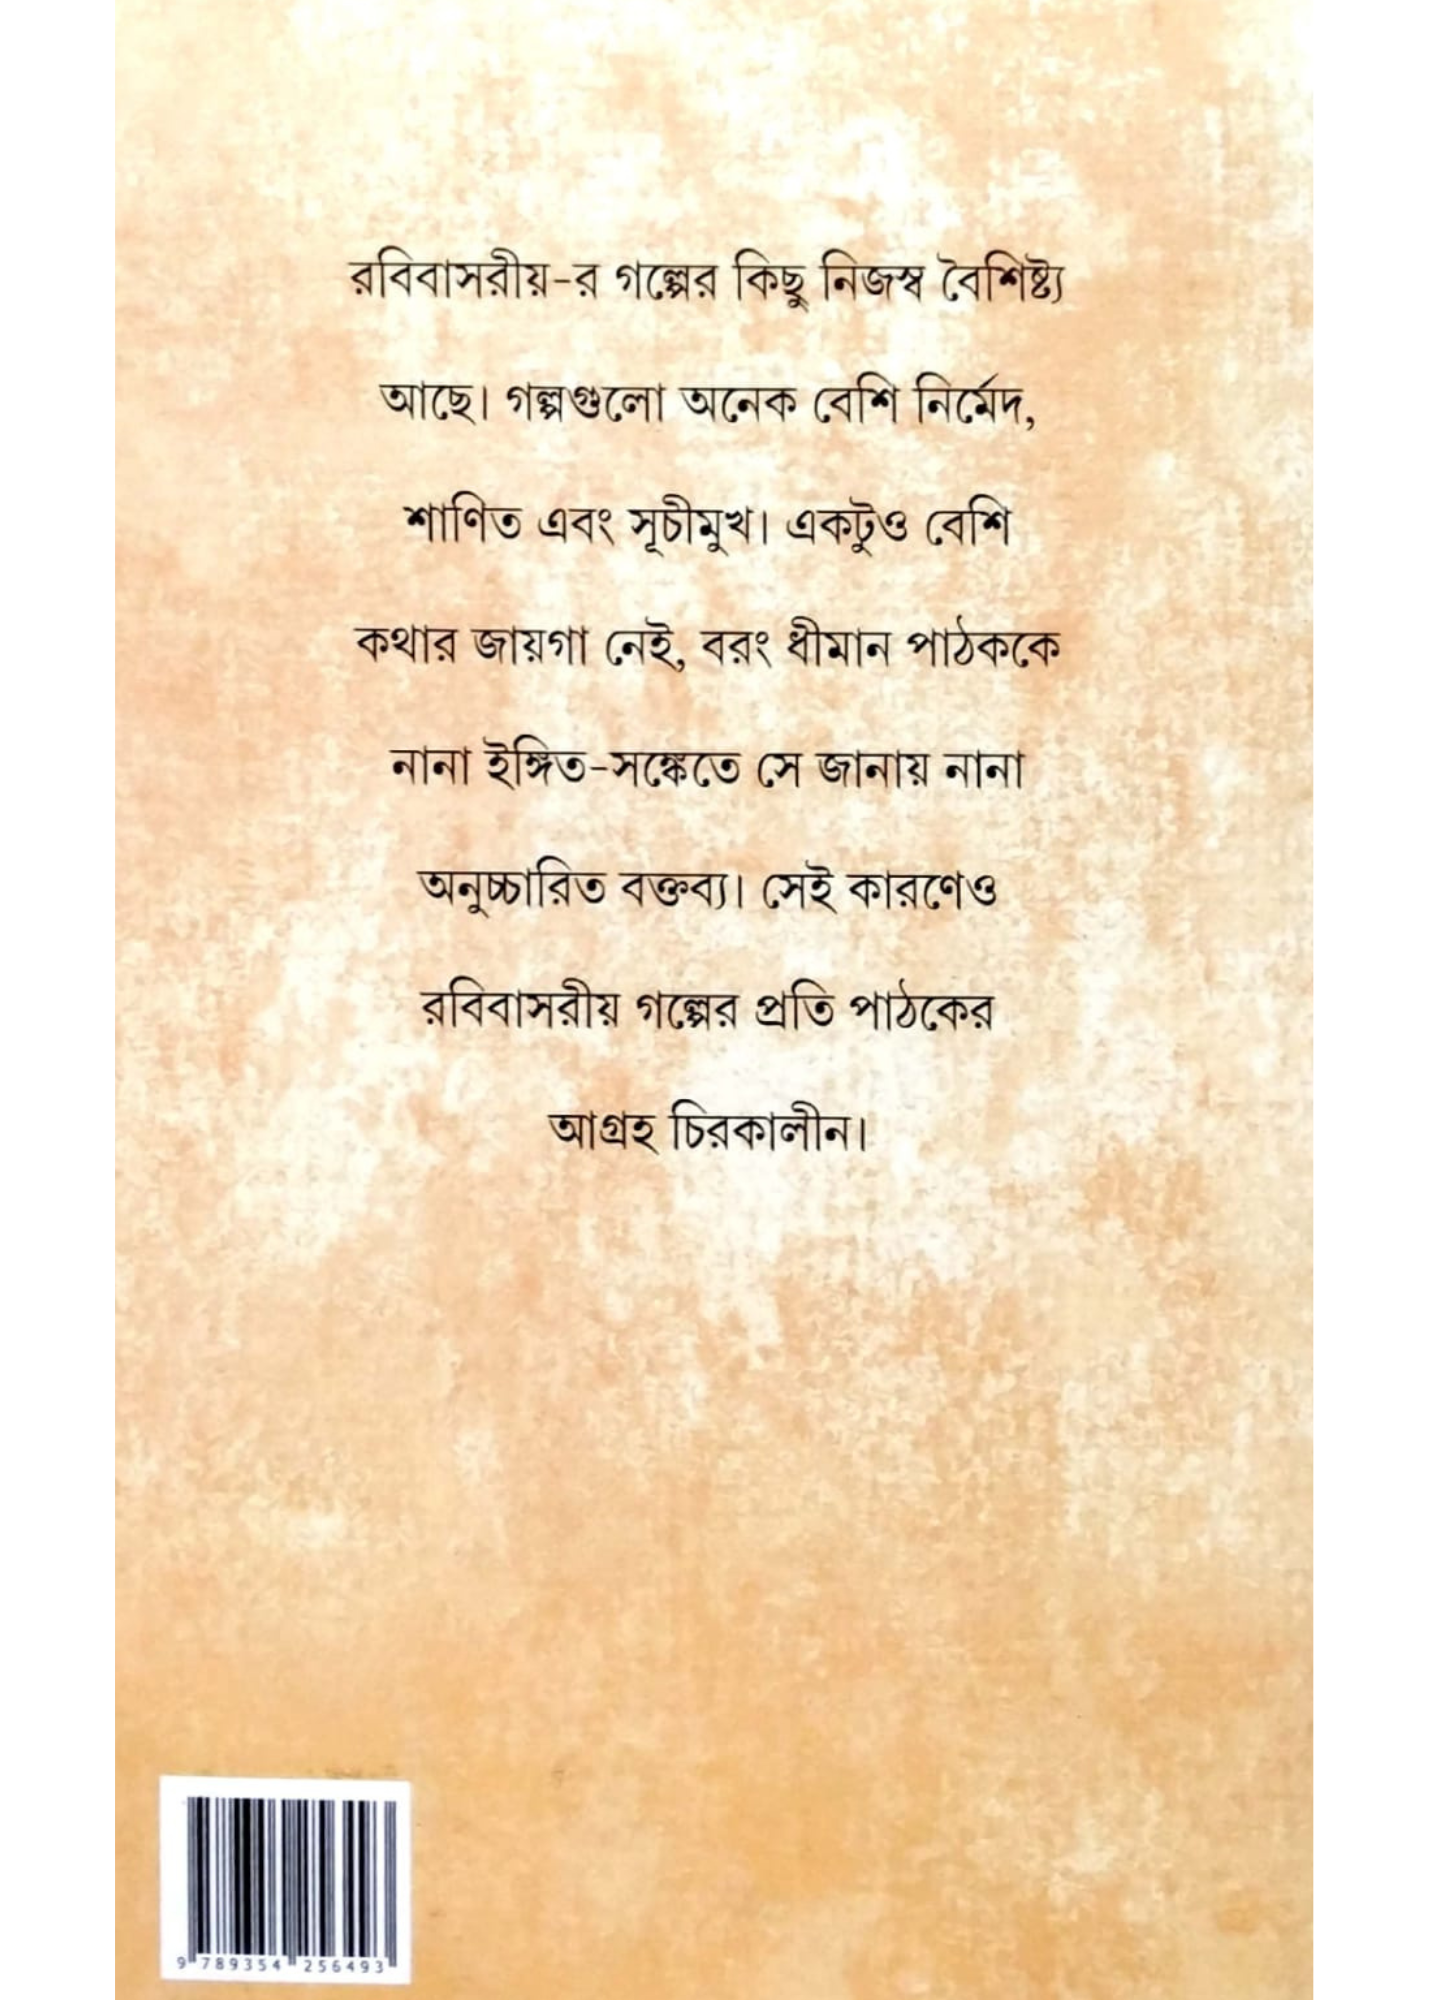 রবিবাসরীয়-র গল্পের কিছু নিজস্ব বৈশিষ্ট্য
আছে। গল্পগুলো অনেক বেশি নির্মেদ,
শাণিত এবং সূচীমুখ। একটুও বেশি
কথার জায়গা নেই, বরং ধীমান পাঠককে
নানা ইঙ্গিত-সঙ্কেতে সে জানায় নানা
অনুচ্চারিত বক্তব্য। সেই কারণেও
রবিবাসরীয় গল্পের প্রতি পাঠকের
আগ্রহ চিরকালীন।
9 789354 256493